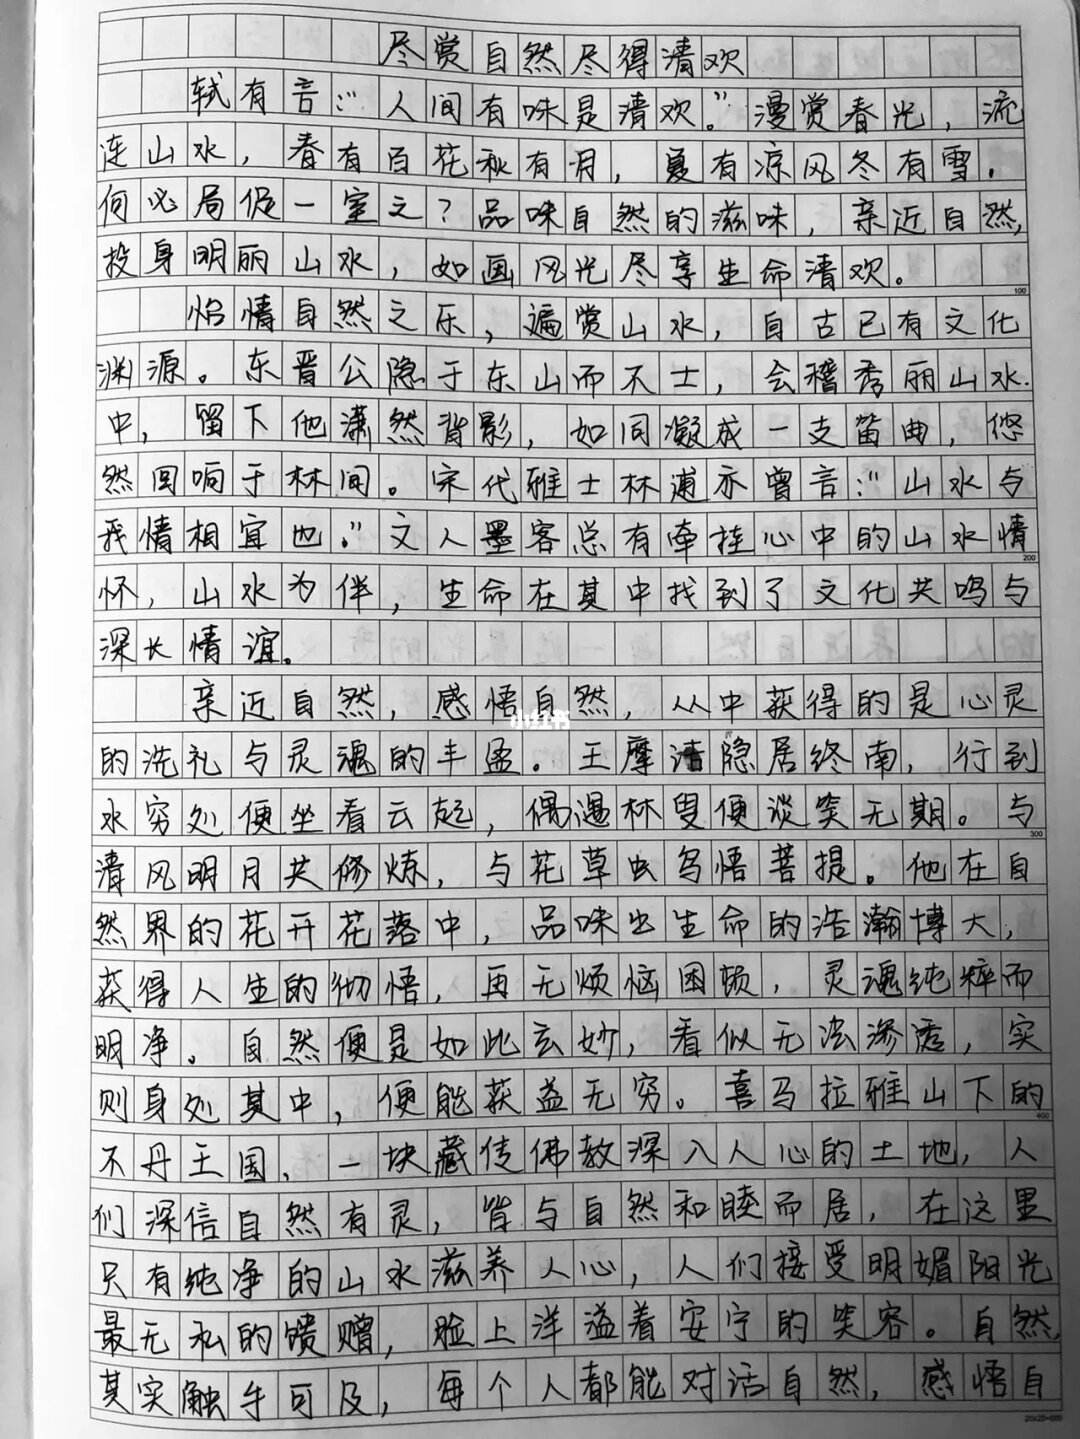 尽赏自然尽得清欢
轼有言:"人间有味是清欢。"漫赏春光,流
连山水,春有百花秋有月,夏有凉风冬有雪.
何必局促一室之?品味自然的滋味,亲近自然,
投身明丽山水,如画风光尽享生命清欢。
怡情自然之乐,遍赏山水,自古已有文化
渊源。东晋公隐于东山而不士,会稽秀丽山水.
中,留下他潇然背影,如同凝成一支笛曲,悠
然回响于林间。宋代雅士林逋亦曾言:"山水与
我情相宜也。"文人墨客总有牵挂心中的山水情
怀,山水为伴,生命在其中找到了文化共鸣与
深长情谊.
亲近自然,感悟自然,从中获得的是心灵
小红书
的洗礼与灵魂的丰盈。王摩诘隐居终南,行到
水穷处便坐看云起,偶遇林叟便谈笑无期。与
300
清风明月共修炼,与花草虫鸟悟菩提。他在自
然界的花开花落中,品味出生命的浩瀚博大,
获得人生的彻悟,再无烦恼困顿,灵魂纯粹而
明净。自然便是如此玄妙,看似无法渗透,实
则身处其中,便能获益无穷。喜马拉雅山下的
400
不丹王国,一块藏传佛教深入人心的土地,人
们深信自然有灵,皆与自然和睦而居,在这里
只有纯净的山水滋养人心,人们接受明媚阳光
最无私的馈赠,脸上洋溢着安宁的笑容。自然,
其实触手可及,每个人都能对话自然,感悟自